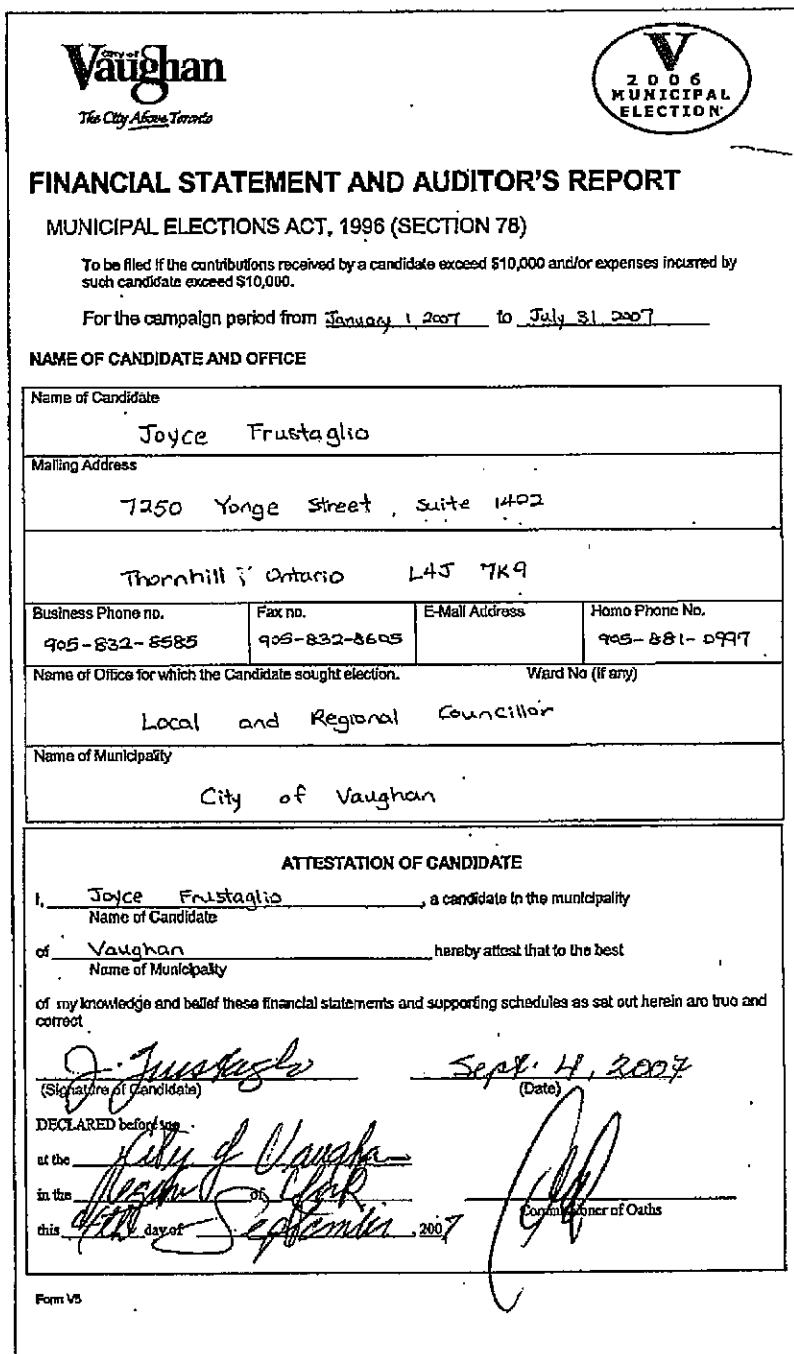 CITY OF
Vaughan
The City Above Toronto
V
2006
MUNICIPAL
ELECTION
FINANCIAL STATEMENT AND AUDITOR'S REPORT
MUNICIPAL ELECTIONS ACT, 1996 (SECTION 78)
To be filed if the contributions received by a candidate exceed $10,000 and/or expenses incurred by
such candidate exceed $10,000.
For the campaign period from January 1 2007 to July 31 2007
NAME OF CANDIDATE AND OFFICE
Name of Candidate
Joyce Frustaglio
Mailing Address
7250 Yonge Street, Suite 1402
Thornhill, Ontario L4J 7K9
Business Phone no. Fax no. E-Mail Address Home Phone No.
905-832-8585 905-832-8605 905-881-0997
Name of Office for which the Candidate sought election. Ward No (if any)
Local and Regional Councillor
Name of Municipality
City of Vaughan
ATTESTATION OF CANDIDATE
I, Joyce Frustaglio, a candidate in the municipality
Name of Candidate
of Vaughan hereby attest that to the best
Name of Municipality
of my knowledge and belief these financial statements and supporting schedules as set out herein are true and
correct
J. Frustaglio Sept. 4, 2007
(Signature of Candidate) (Date)
DECLARED before me
at the City of Vaughan
in the Region of York
Commissioner of Oaths
this 4th day of September, 2007
Form V5